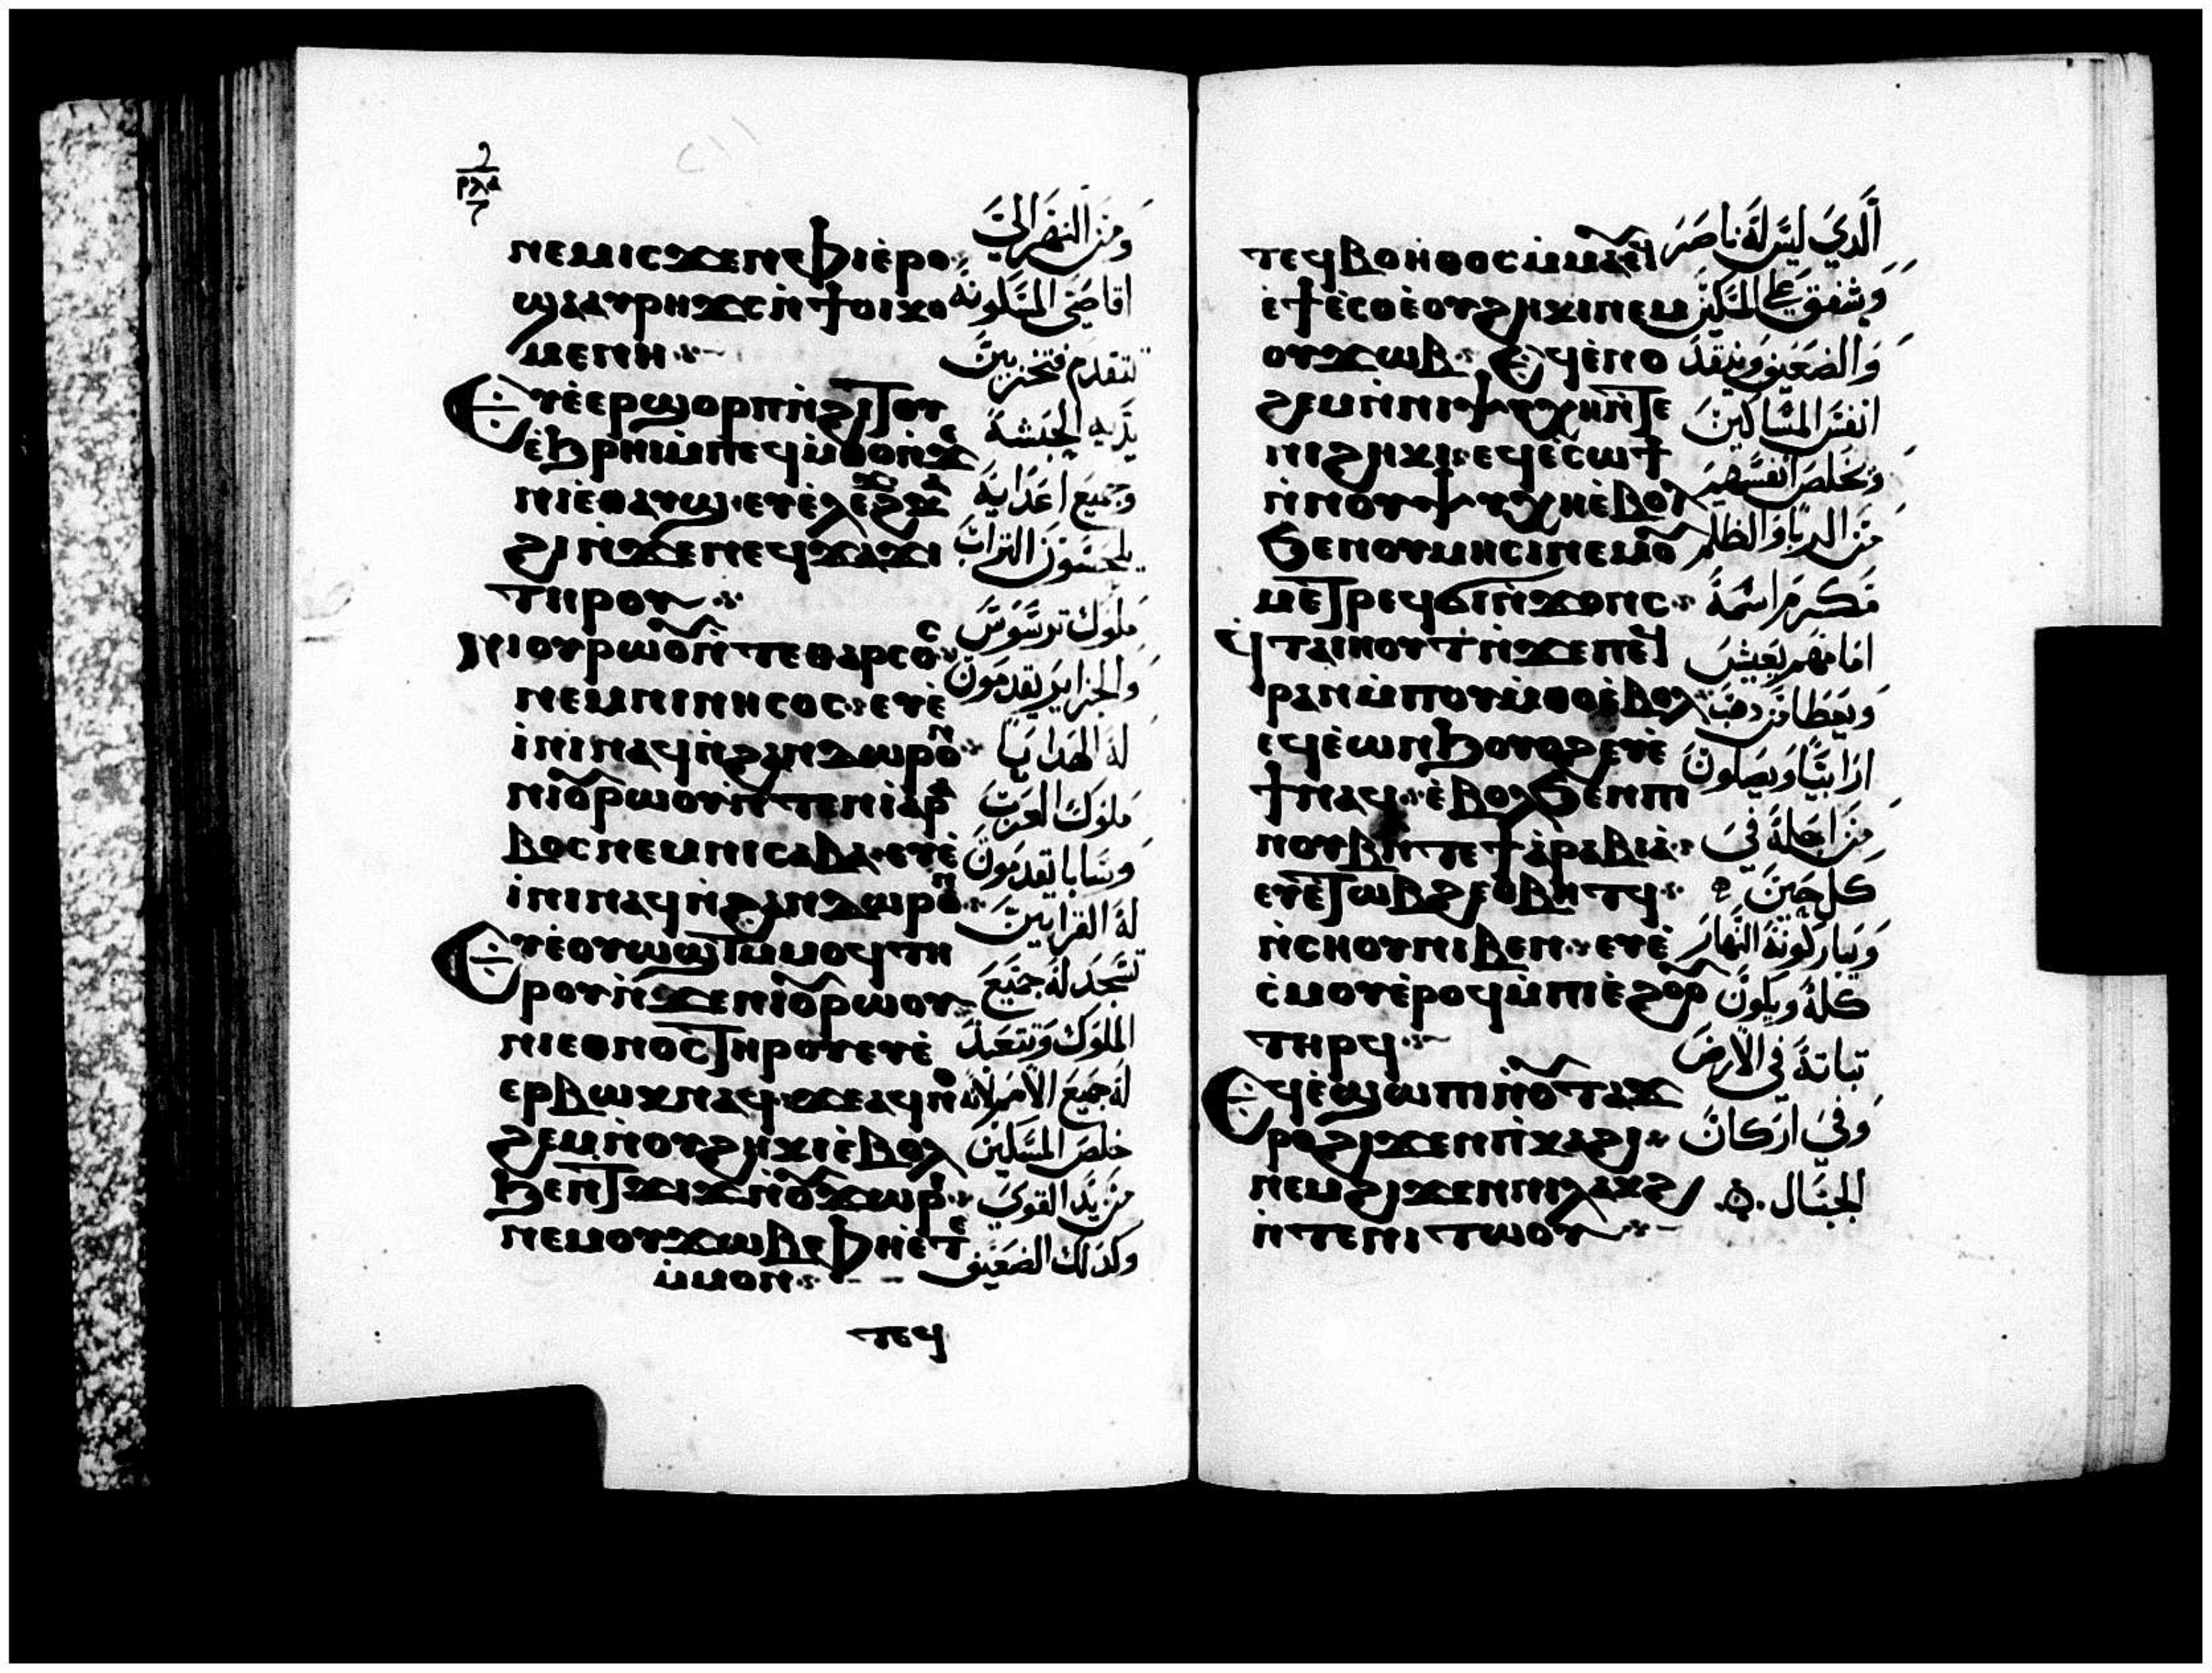 ⲛⲉⲙⲓⲥϫⲉⲛⲫⲓⲉ̀ⲣⲟ
ϣⲁⲁⲩⲣⲏϫⲥⲛ̀ϯⲟⲓⲕⲟ
ⲙⲉⲛⲏ
Ⲉⲩⲉ̀ⲉⲣϣⲟⲣⲡⲛ̀ϩⲓⲧⲟⲩ
ⲉ̀ϧⲣⲏⲓⲙ̀ⲡⲉϥⲙ̀ⲑⲟⲛ̀ϫⲉ
ⲛⲓⲉ̀ⲑⲁⲩϣ ⲉⲩⲉ̀ⲗⲉϩϫ
ϩⲓⲛ̀ϫⲉⲛⲉϥϫⲁϫⲓ
ⲧⲏⲣⲟⲩ
Ⲛⲓⲟⲩⲣⲱⲟⲩⲛ̀ⲧⲉⲑⲁⲣⲥⲟⲥ
ⲛⲉⲙⲛⲓⲛⲏⲥⲟⲥ ⲉⲩⲉ̀
ⲓ̀ⲛⲓⲛⲁϥⲛ̀ϩⲁⲛⲇⲱⲣⲟⲛ
ⲛⲓⲟⲩⲣⲱⲟⲩⲛ̀ⲧⲉⲛⲓⲁⲣⲁ
ⲃⲟⲥⲛⲉⲙⲛⲓⲥⲁⲃⲁ ⲉⲩⲉ̀
ⲓ̀ⲛⲓⲛⲁϥⲛ̀ϩⲁⲛⲇⲱⲣⲟⲛ
Ⲉⲩⲉ̀ⲟⲩⲱϣⲧⲙ̀ⲙⲟϥⲧⲏ
ⲣⲟⲩⲛ̀ϫⲉⲛⲓⲟⲩⲣⲱⲟⲩ
ⲛⲓⲉⲑⲛⲟⲥⲧⲏⲣⲟⲩⲉⲩⲉ̀
ⲉⲣⲃⲱⲕⲛⲁϥ ϫⲉⲁϥⲛⲟ
ϩⲉⲙⲛ̀ⲟⲩϩⲏⲕⲓⲉ̀ⲃⲟⲗ
ϧⲉⲛⲧϫⲓϫⲛ̀ⲟⲩϫⲱⲣⲓ
ⲛⲉⲙⲟⲩϫⲱⲃ ⲫⲏⲉ̀ⲧⲉ
ⲙ̀ⲙⲟⲛ
ⲧⲉϥ
ومن النهر الي
اقاصي المسكونه
تتقدم فتخر بين
يديه الحبشة
وجميع اعدايه
يلحسون التراب
ملوك ترسوس
والجزاير يقدمون
له الهدايا
ملوك العرب
وسابا يقدمون
له القرابين
تسجد له جميع
الملوك وتتعبد
له جميع الامم لانه
خلص المسكين
من يد القوي
وكذلك الضعيف
ⲧⲉϥⲃⲟⲏⲑⲟⲥⲙ̀ⲙⲁⲩ
ⲉ̀ϯⲁ̀ⲥⲟⲉ̀ⲟⲩϩⲏⲕⲓⲛⲉⲙ
ⲟⲩϫⲱⲃ Ⲉϥⲉ̀ⲛⲟ
ϩⲉⲙⲛ̀ⲛⲓⲯⲩⲭⲏⲛ̀ⲧⲉ
ⲛⲓϩⲏⲕⲓ ⲉϥⲉ̀ⲥⲱϯ
ⲛ̀ⲛⲟⲩⲯⲩⲭⲏⲉ̀ⲃⲟⲗ
ϧⲉⲛⲟⲩⲙⲏⲥⲓⲛⲉⲙⲟⲩ
ⲙⲉⲧⲣⲉϥϭⲓⲛ̀ϫⲟⲛⲥ
ϥⲧⲁⲓⲏⲟⲩⲧⲛ̀ϫⲉⲡⲉϥ
ⲣⲁⲛⲙ̀ⲡⲟⲩⲙ̀ⲑⲟⲉ̀ⲃⲟⲗ
ⲉϥⲉ̀ⲱⲛϧⲟⲩⲟϩⲉⲩⲉ̀
ϯⲛⲁϥ ⲉ̀ⲃⲟⲗϧⲉⲛⲡⲓ
ⲛⲟⲩⲃⲛ̀ⲧⲉϯⲁ̀ⲣⲁⲃⲓⲁ̀
ⲉⲩⲉ̀ⲧⲱⲃϩⲉⲑⲃⲏⲧϥ
ⲛ̀ⲥⲏⲟⲩⲛⲓⲃⲉⲛ ⲉⲩⲉ̀
ⲥ̀ⲙⲟⲩⲉ̀ⲣⲟϥⲙ̀ⲡⲓⲉ̀ϩⲟⲟⲩ
ⲧⲏⲣϥ
Ⲉϥⲉ̀ϣⲱⲡⲓⲛ̀ⲟⲩⲧⲁϫ
ⲣⲟϩⲓϫⲉⲛⲡⲓⲕⲁϩⲓ
ⲛⲉⲙϩⲓϫⲉⲛⲛⲓⲗⲁⲕϩ
ⲛ̀ⲧⲉⲛⲓⲧⲱⲟⲩ
الدي ليس له ناصر
وشفق علي المسكين
والضعيف وينقد
انفس المساكين
ويخلص انفسهم
من الربا والظلم
مكرم اسمه
امامهم يعيش
ويعطا من دهب
ارابيا ويصلون
من اجله في
كل حين
ويباركونه النهار
كله ويكون
تباته في الارض
وفي اركان
الجبال